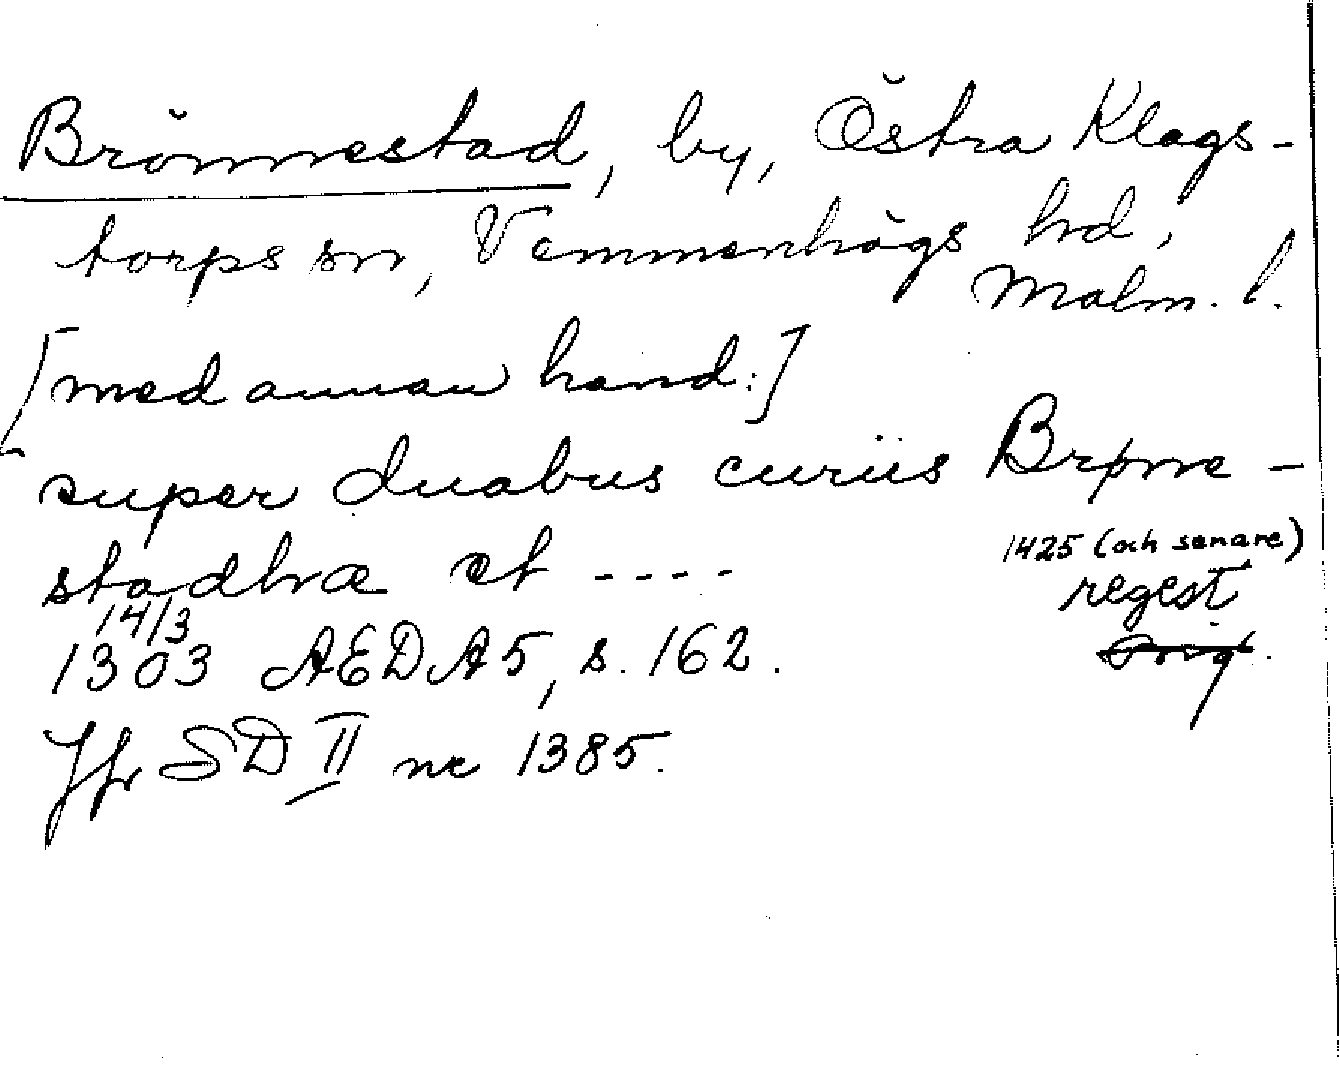 Brönnestad, by, Östra Klags-
torps sn, Vemmenhögs hd,
Malm. l.
[med annan hand:]
super duabus curiis Brøme-
stadhæ et ----
1425 (och senare)
regest
Orig.
14/3
1303 AEDA5, s. 162.
Jfr SD II nr 1385.